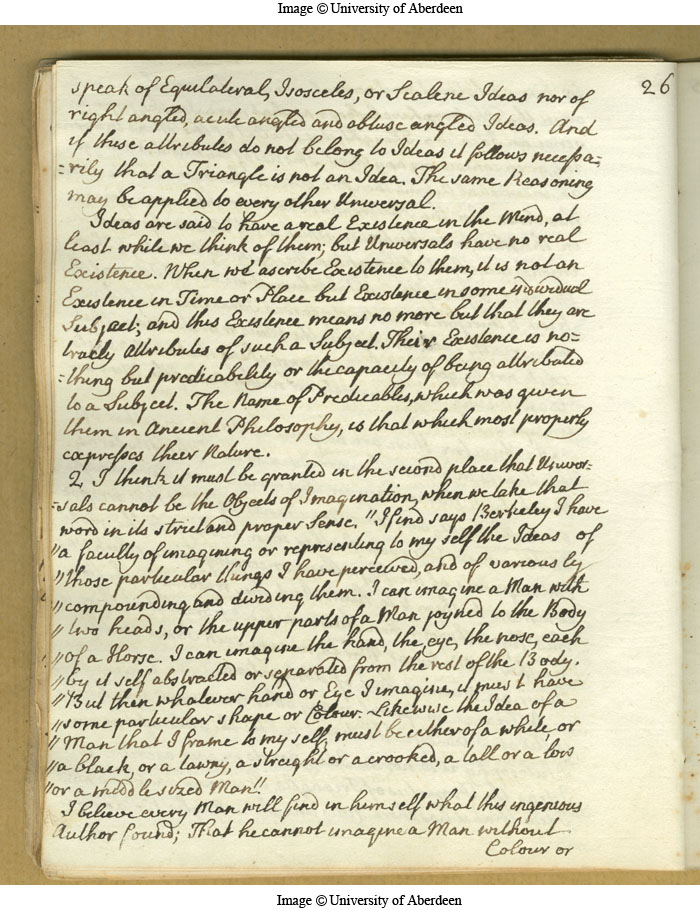 Image © University of Aberdeen
26
speak of Equilateral, Isosceles, or Scalene Ideas nor of
right angled, acute angled and obtuse angled Ideas. And
if these attributes do not belong to Ideas it follows necessa=
=rily that a Triangle is not an Idea. The same Reasoning
may be applied to every other Universal.
Ideas are said to have a real Existence in the Mind, at
least while we think of them; but Universals have no real
Existence. When we ascribe Existence to them, it is not an
Existence in Time or Place but Existence in some individual
Subject; and this Existence means no more but that they are
truely attributes of such a Subject. Their Existence is no=
=thing but predicability or the capacity of being attributed
to a Subject. The Name of Predicables, which was given
them in Ancient Philosophy, is that which most properly
expresses their Nature.
2 I think it must be granted in the second place that Univer=
=sals cannot be the Objects of Imagination, when we take that
word in its strict and proper Sense. "I find says Berkeley I have
"a faculty of imagining or representing to my self the Ideas of
"those particular things I have perceived, and of variously
"compounding and dividing them. I can imagine a Man with
"two heads, or the upper parts of a Man joyned to the Body
"of a Horse. I can imagine the hand, the eye, the nose, each
"by it self abstracted or separated from the rest of the Body.
"But then whatever hand or Eye I imagine, it must have
"some particular shape or Colour. Likewise the Idea of a
"Man that I frame to my self, must be either of a white, or
"a black, or a tawny, a streight or a crooked, a tall or a low
"or a middle sized Man"
I believe every Man will find in himself what this ingenious
Author found; That he cannot imagine a Man without
Colour or
Image © University of Aberdeen